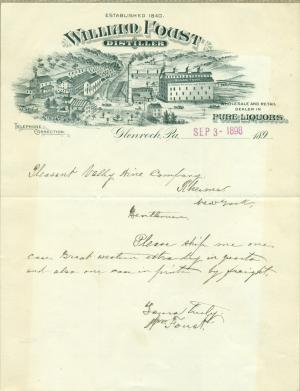 ESTABLISHED 1840.
WILLIAM FOUST
DISTILLER
WHOLESALE AND RETAIL
DEALER IN
PURE LIQUORS.
TELEPHONE
CONNECTION.
Glenrock, Pa. SEP 3 - 1898 189
Pleasant Valley Wine Company
Rheims
New York,
Gentlemen
Please ship me one
case Great western extra dry in quarts
and also one case in pints by freight.
Yours truly
Wm Foust.